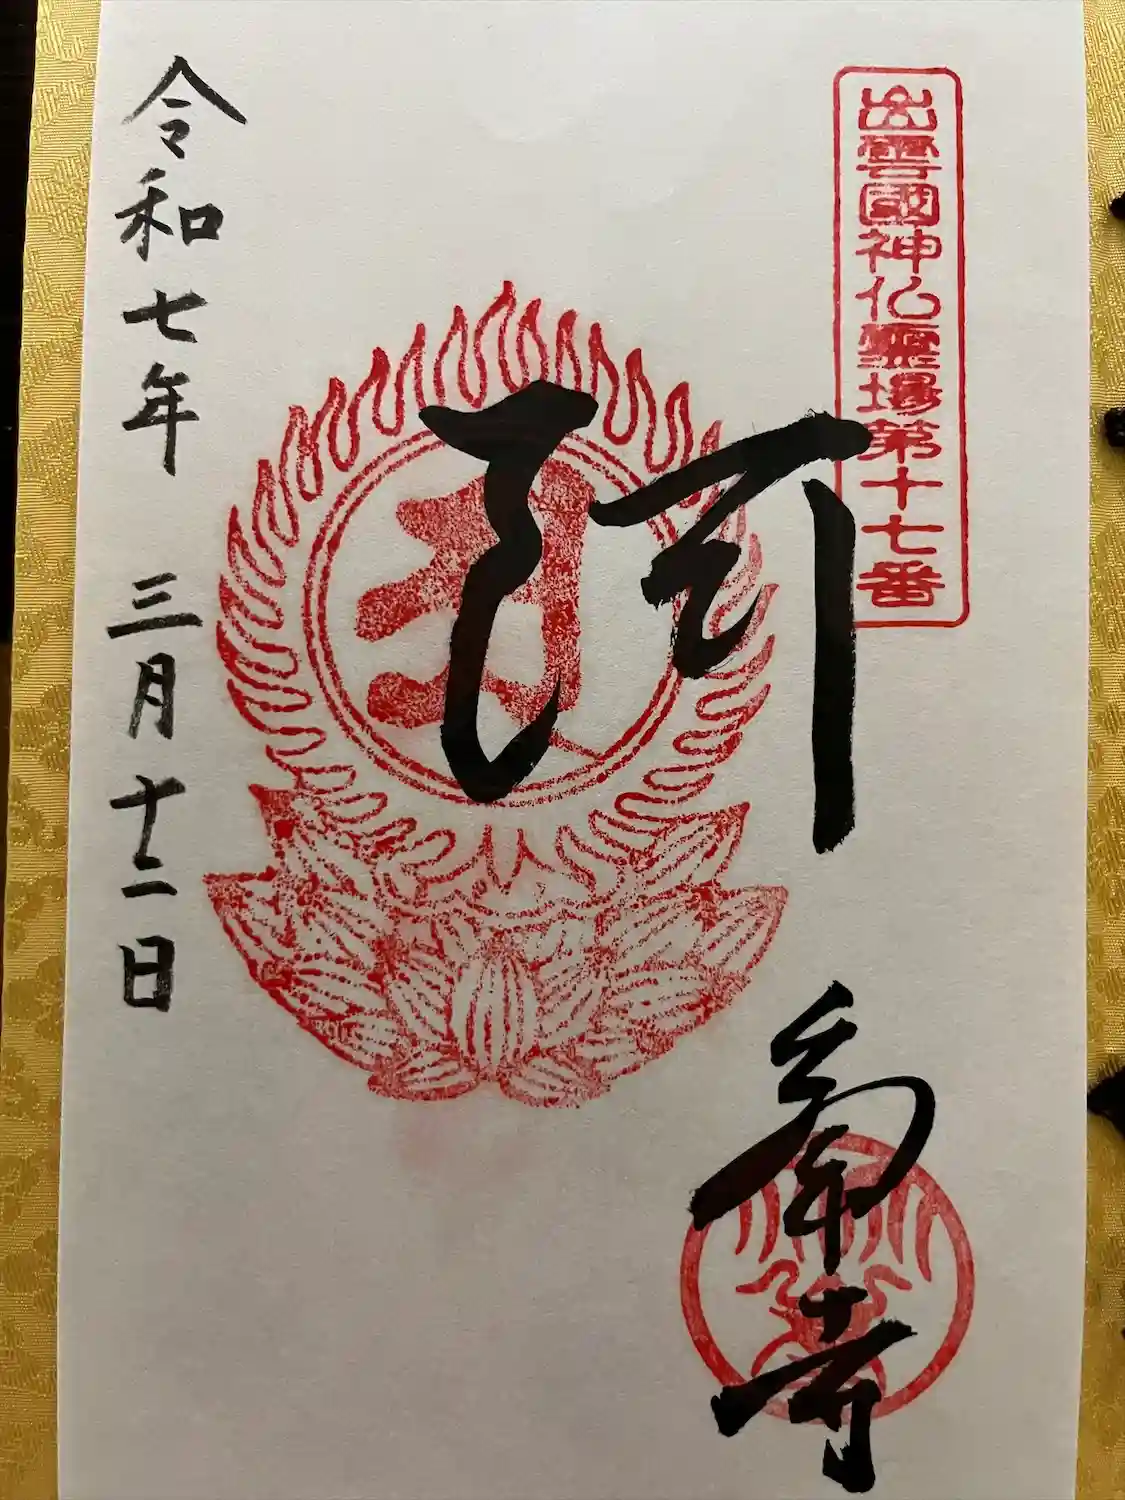 出雲國神仏霊場第十七番
峯寺
令和七年 三月十二日